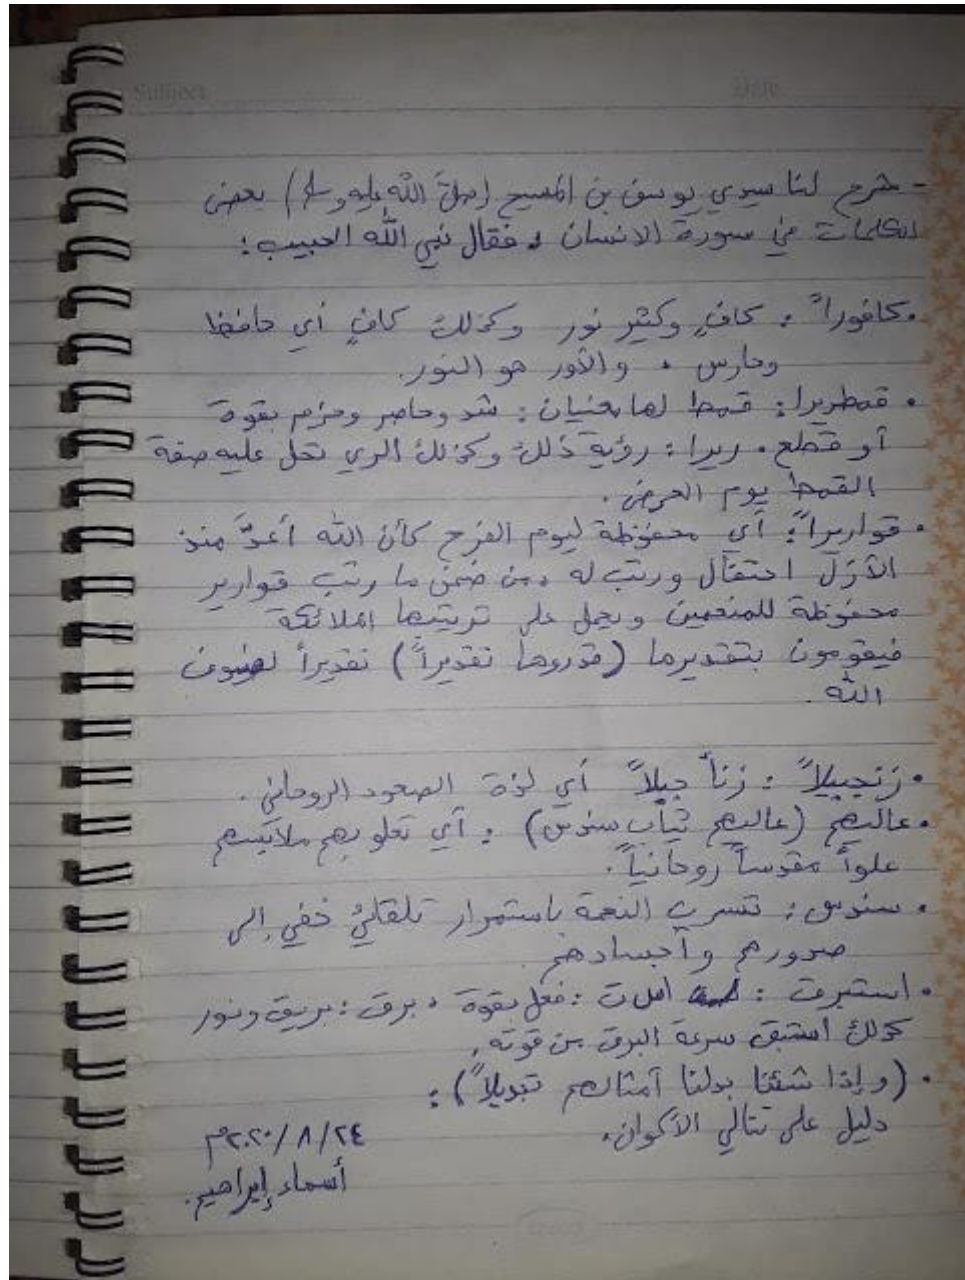 Subject Date
- شرح لنا سيدي يوسف بن المسيح (صلى الله عليه وسلم) بعض
الكلمات في سورة الانسان ، فقال نبي الله الحبيب :
• كافوراً : كافٍ وكثير نور وكذلك كافٍ أي حافظ
وحارس ، والأور هو النور.
• قمطريرا : قمط لها معنيان : شد وحاصر وحزم بقوة
أو قطع . ريرا : رؤية ذلك وكذلك الري تحل عليه صفة
القمط يوم العرض .
• قواريراً : أي محفوظة ليوم الفرح كأن الله أعدَّ منذ
الأزل احتفال ورتب له ، من ضمن ما رتب قوارير
محفوظة للمنعمين ويعمل على تريتبها الملائكة
فيقومون بتقديرها (قدروها تقديراً) تقديراً لضيوف
الله .
• زنجبيلاً : زنأ جبلاً أي لذة الصعود الروحاني .
• عاليهم (عاليهم ثياب سندس) : أي تعلو بهم ملابسهم
علواً مقدساً روحانياً .
• سندس : تسرب النعمة باستمرار تلقائي خفي إلى
صدورهم وأجسادهم .
• استبرق : است : فعل بقوة ، برق : بريق ونور
كذلك استبق سرعة البرق من قوته .
• (وإذا شئنا بدلنا أمثالهم تبديلاً) :
دليل على تتالي الأكوان .
٢٤/٨/٢٠٢٠م
أسماء إبراهيم .